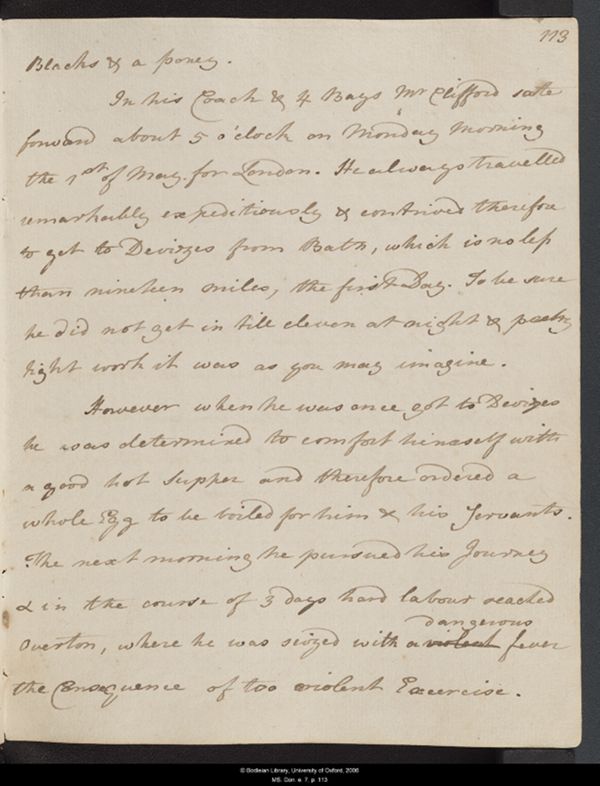 113
Blacks & a poney.
In his Coach & 4 Bays Mr Clifford sate
forward about 5 o'clock on Monday Morning
the 1st of May for London. He always travelled
remarkably expeditiously & contrived therefore
to get to Devizes from Bath, which is no less
than nineteen miles, the first Day. To be sure
he did not get in till eleven at night & pretty
tight work it was as you may imagine.
However when he was once got to Devizes
he was determined to comfort himself with
a good hot Supper and therefore ordered a
whole Egg to be boiled for him & his Servants.
The next morning he pursued his Journey
& in the course of 3 days hard labour reached
dangerous
Overton, where he was seized with a violent fever
the Consequence of too violent Excercise.
© Bodleian Library, University of Oxford, 2006
MS. Don. e. 7, p. 113